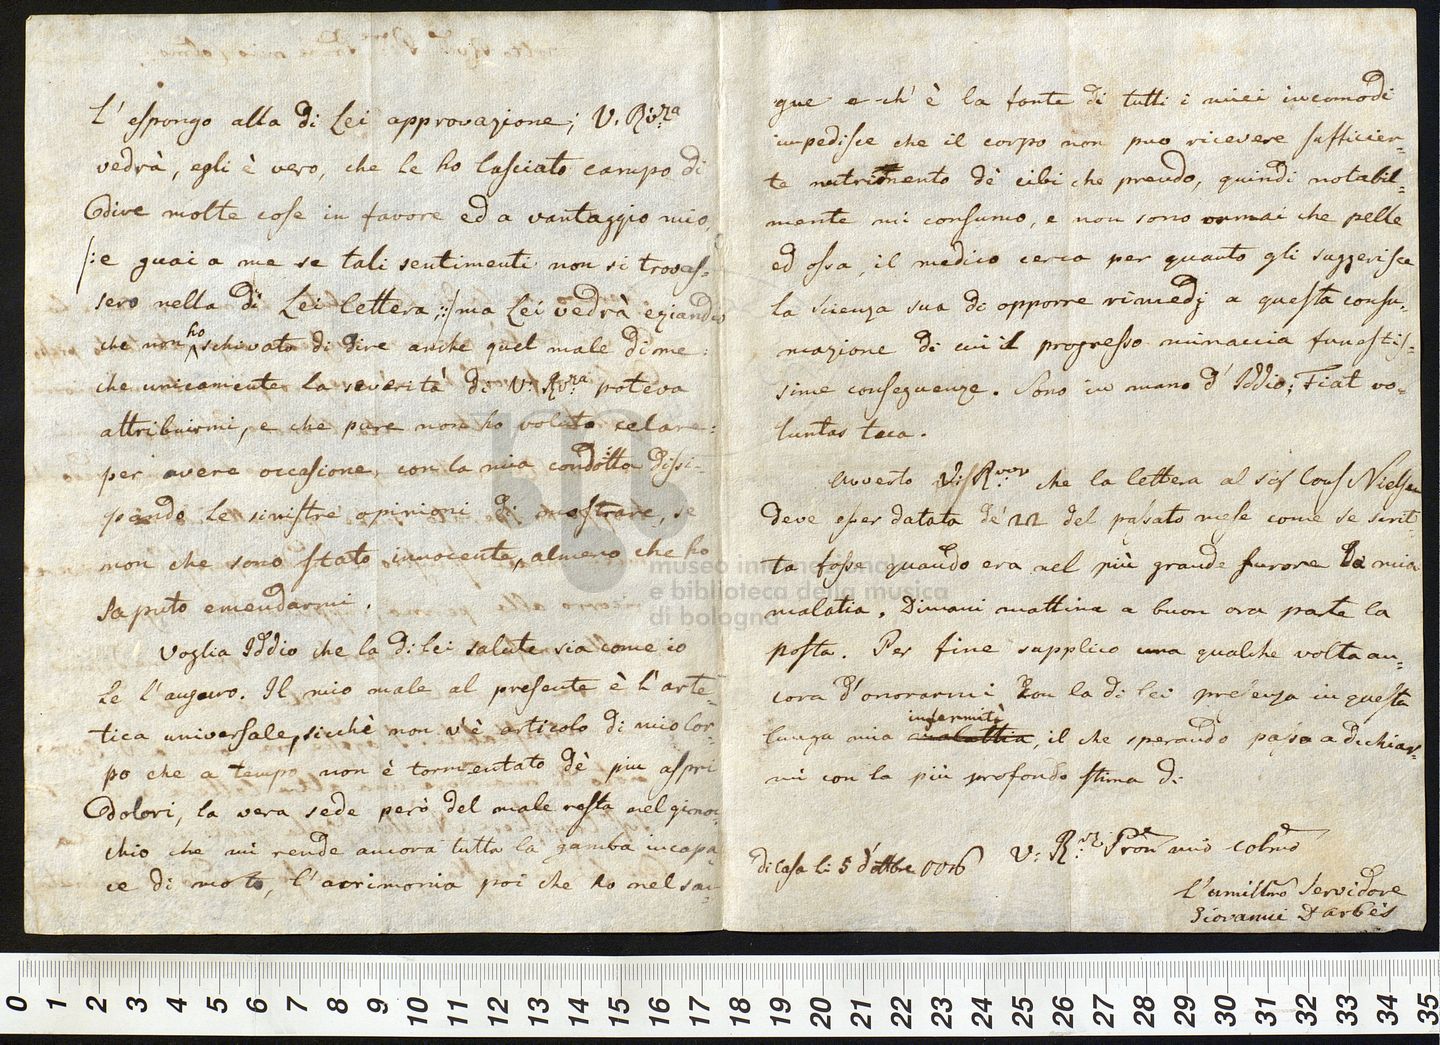 L'espongo alla di Lei approvazione; V. Rvza
vedrà, egli è vero, che le ho lasciato campo di
dire molte cose in favore ed a vantaggio mio,
/:e guai a me se tali sentimenti non si trovas-
sero nella di Lei lettera:/ ma Lei vedrà eziandio
che non ho schivato di dire anche quel male di me:
che unicamente la severità di V: Rvza poteva
attribuirmi, e che pure non ho voluto celare:
per avere occasione, con la mia condotta dissi-
pando le sinistre opinioni di mostrare, se
non che sono stato innocente, almeno che ho
saputo emendarmi.
Voglia Iddio che la di lei salute sia come io
le l'auguro. Il mio male al presente è l'arte-
tica universale, sicchè non v'è articolo di mio cor-
po che a tempo non è tormentato dè più aspri
dolori, la vera sede però del male resta nel ginoc-
chio che mi rende ancora tutta la gamba incapa-
ce di moto, l'acrimonia poi che ho nel san-
gue e ch' è la fonte di tutti i miei incomodi
impedisce che il corpo non può ricevere sufficien-
te nutrimento dè cibi che prendo, quindi notabil-
mente mi consumo, e non sono ormai che pelle
ed ossa, il medico cerca per quanto gli suggerisce
la scienza sua di opporre rimedj a questa consu-
mazione di cui il progresso minaccia funestis-
sime conseguenze. Sono in mano d' Iddio; Fiat vo-
luntas tua.
Avverto V: R che la lettera al Cons Nielsen
deve esser datata dè 22 del passato mese come se scrit-
ta fosse quando era nel più grande furore la mia
malatia. Dimani mattina a buon ora parte la
posta. Per fine supplico una qualche volta an-
cora d'onorarmi con la di lei presenza in questa
lunga mia malattia infermità, il che sperando passo a dichiarar-
mi con la più profonda stima di
di Casa li 5 d'ottbre
V: R Pron mio colmo
L'umillmo Servidore
Giovanni Darbès
museo internazionale
e biblioteca della musica
di bologna
0 1 2 3 4 5 6 7 8 9 10 11 12 13 14 15 16 17 18 19 20 21 22 23 24 25 26 27 28 29 30 31 32 33 34 35